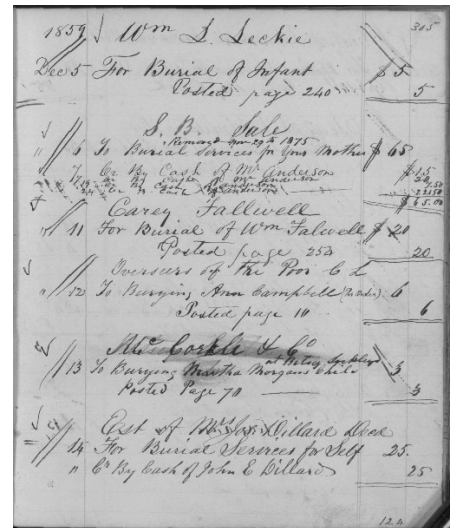 305
1859 Wm L. Leckie
Dec 5 For Burial of Infant $ 5
Posted page 240 5
S. B. Sale
Removed Nov 29th 1875
" 6 To Burial Services for your Mother $ 65
7 Cr By Cash of Mr Anderson $15
Cr By Cash of Mr Anderson
Cr By Cash Anderson
$65.00
Carey Fallwell
" 11 For Burial of Wm Falwell $ 20
Posted page 254 20
Overseers of the Poor C L
" 12 To Burying Ann Campbell 6
Posted page 10 6
McCorkle & Co
" 13 To Burying Martha Morgans Child at Betsy 3
Posted Page 70 3
Est of Dillard Decd
" 14 For Burial Services for Self 25.
" Cr By Cash of John E Dillard 25
124